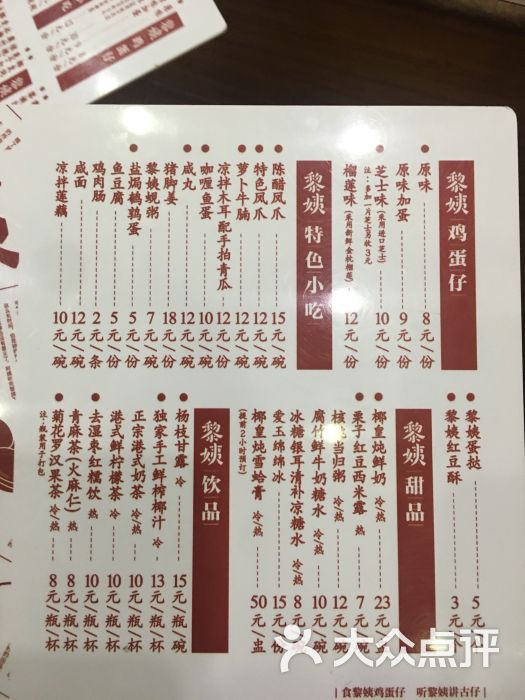 黎姨鸡蛋仔
原味 8元/份
原味加蛋 9元/份
芝士味(采用进口芝士) 10元/份
注:多加一片芝士另收3元
榴莲味(采用新鲜金枕榴莲) 12元/份
黎姨特色小吃
陈醋凤爪 15元/碗
特色凤爪 12元/碗
萝卜牛腩 12元/碗
凉拌木耳配手拍青瓜 12元/碗
咖喱鱼蛋 10元/碗
咸丸 12元/碗
猪脚姜 18元/份
黎姨蚬粥 7元/碗
盐焗鹌鹑蛋 5元/份
鱼豆腐 5元/份
鸡肉肠 2元/条
咸面 12元/碗
凉拌莲藕 10元/碗
黎姨蛋挞 5元
黎姨红豆酥 3元
黎姨甜品
椰皇炖鲜奶 冷/热 23元/盅
栗子红豆西米露 冷/热 7元/碗
核桃当归粥 冷/热 12元/碗
腐竹鲜牛奶糖水 冷/热 10元/碗
冰糖银耳清补凉糖水 冷/热 8元/碗
爱玉绵绵冰 15元/份
椰皇炖雪蛤膏 冷/热 50元/盅
(提前2小时预订)
黎姨饮品
杨枝甘露 冷 15元/瓶/碗
独家手工鲜榨椰汁 冷 13元/瓶/杯
正宗港式奶茶 冷/热 10元/瓶/杯
港式鲜柠檬茶 冷/热 10元/瓶/杯
去湿枣红糯饮 冷/热 10元/瓶/杯
青麻茶(火麻仁) 冷/热 8元/瓶/杯
菊花罗汉果茶 冷/热 8元/瓶/杯
注:瓶装用于打包
食黎姨鸡蛋仔 听黎姨讲古仔
大众点评